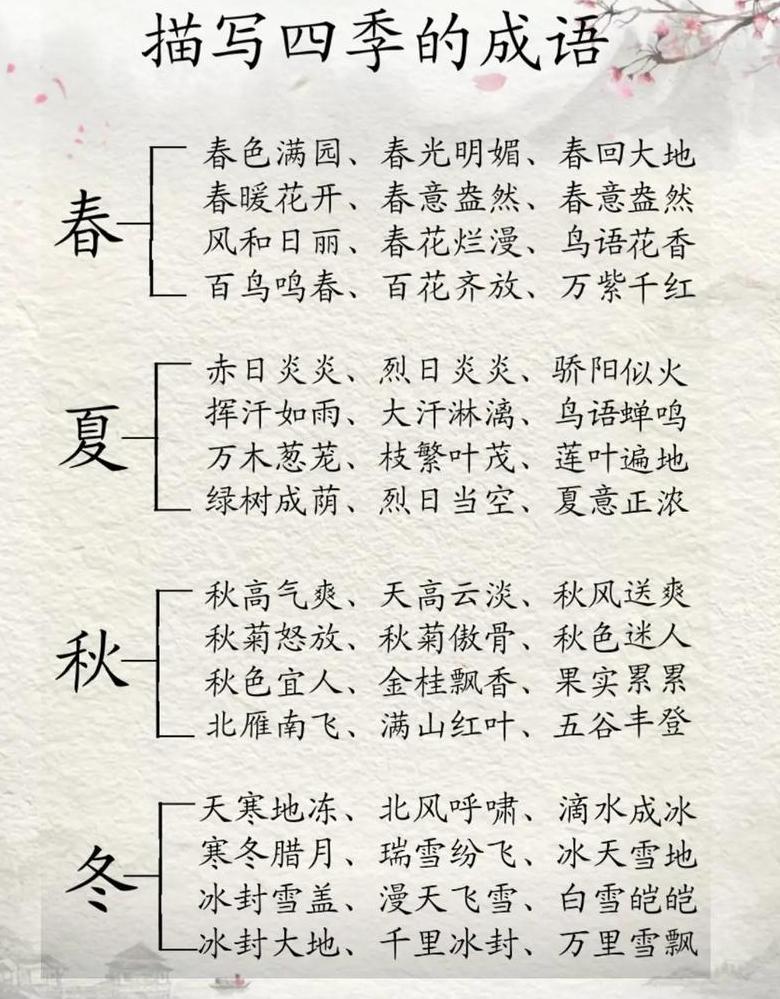 描写四季的成语
春
春色满园、春光明媚、春回大地
春暖花开、春意盎然、春意盎然
风和日丽、春花烂漫、鸟语花香
百鸟鸣春、百花齐放、万紫千红
夏
赤日炎炎、烈日炎炎、骄阳似火
挥汗如雨、大汗淋漓、鸟语蝉鸣
万木葱茏、枝繁叶茂、莲叶遍地
绿树成荫、烈日当空、夏意正浓
秋
秋高气爽、天高云淡、秋风送爽
秋菊怒放、秋菊傲骨、秋色迷人
秋色宜人、金桂飘香、果实累累
北雁南飞、满山红叶、五谷丰登
冬
天寒地冻、北风呼啸、滴水成冰
寒冬腊月、瑞雪纷飞、冰天雪地
冰封雪盖、漫天飞雪、白雪皑皑
冰封大地、千里冰封、万里雪飘